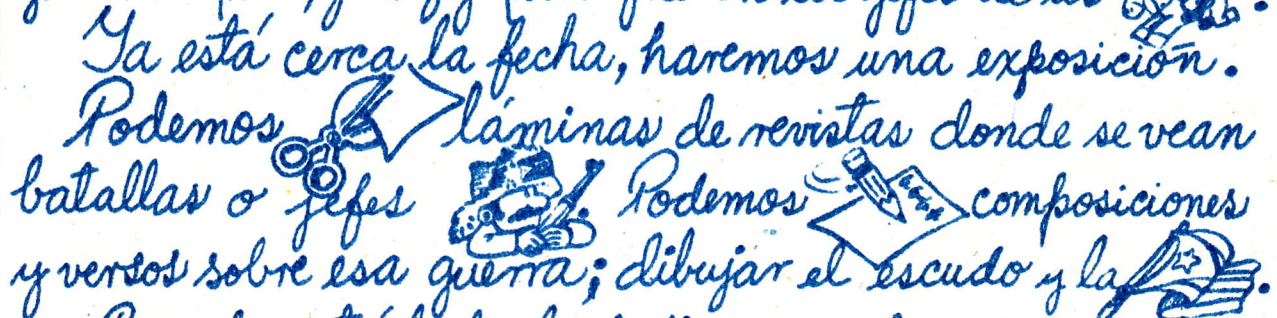 Ya está cerca la fecha, haremos una exposición.
Podemos láminas de revistas donde se vean
batallas o jefes . Podemos composiciones
y versos sobre esa guerra; dibujar el escudo y la .